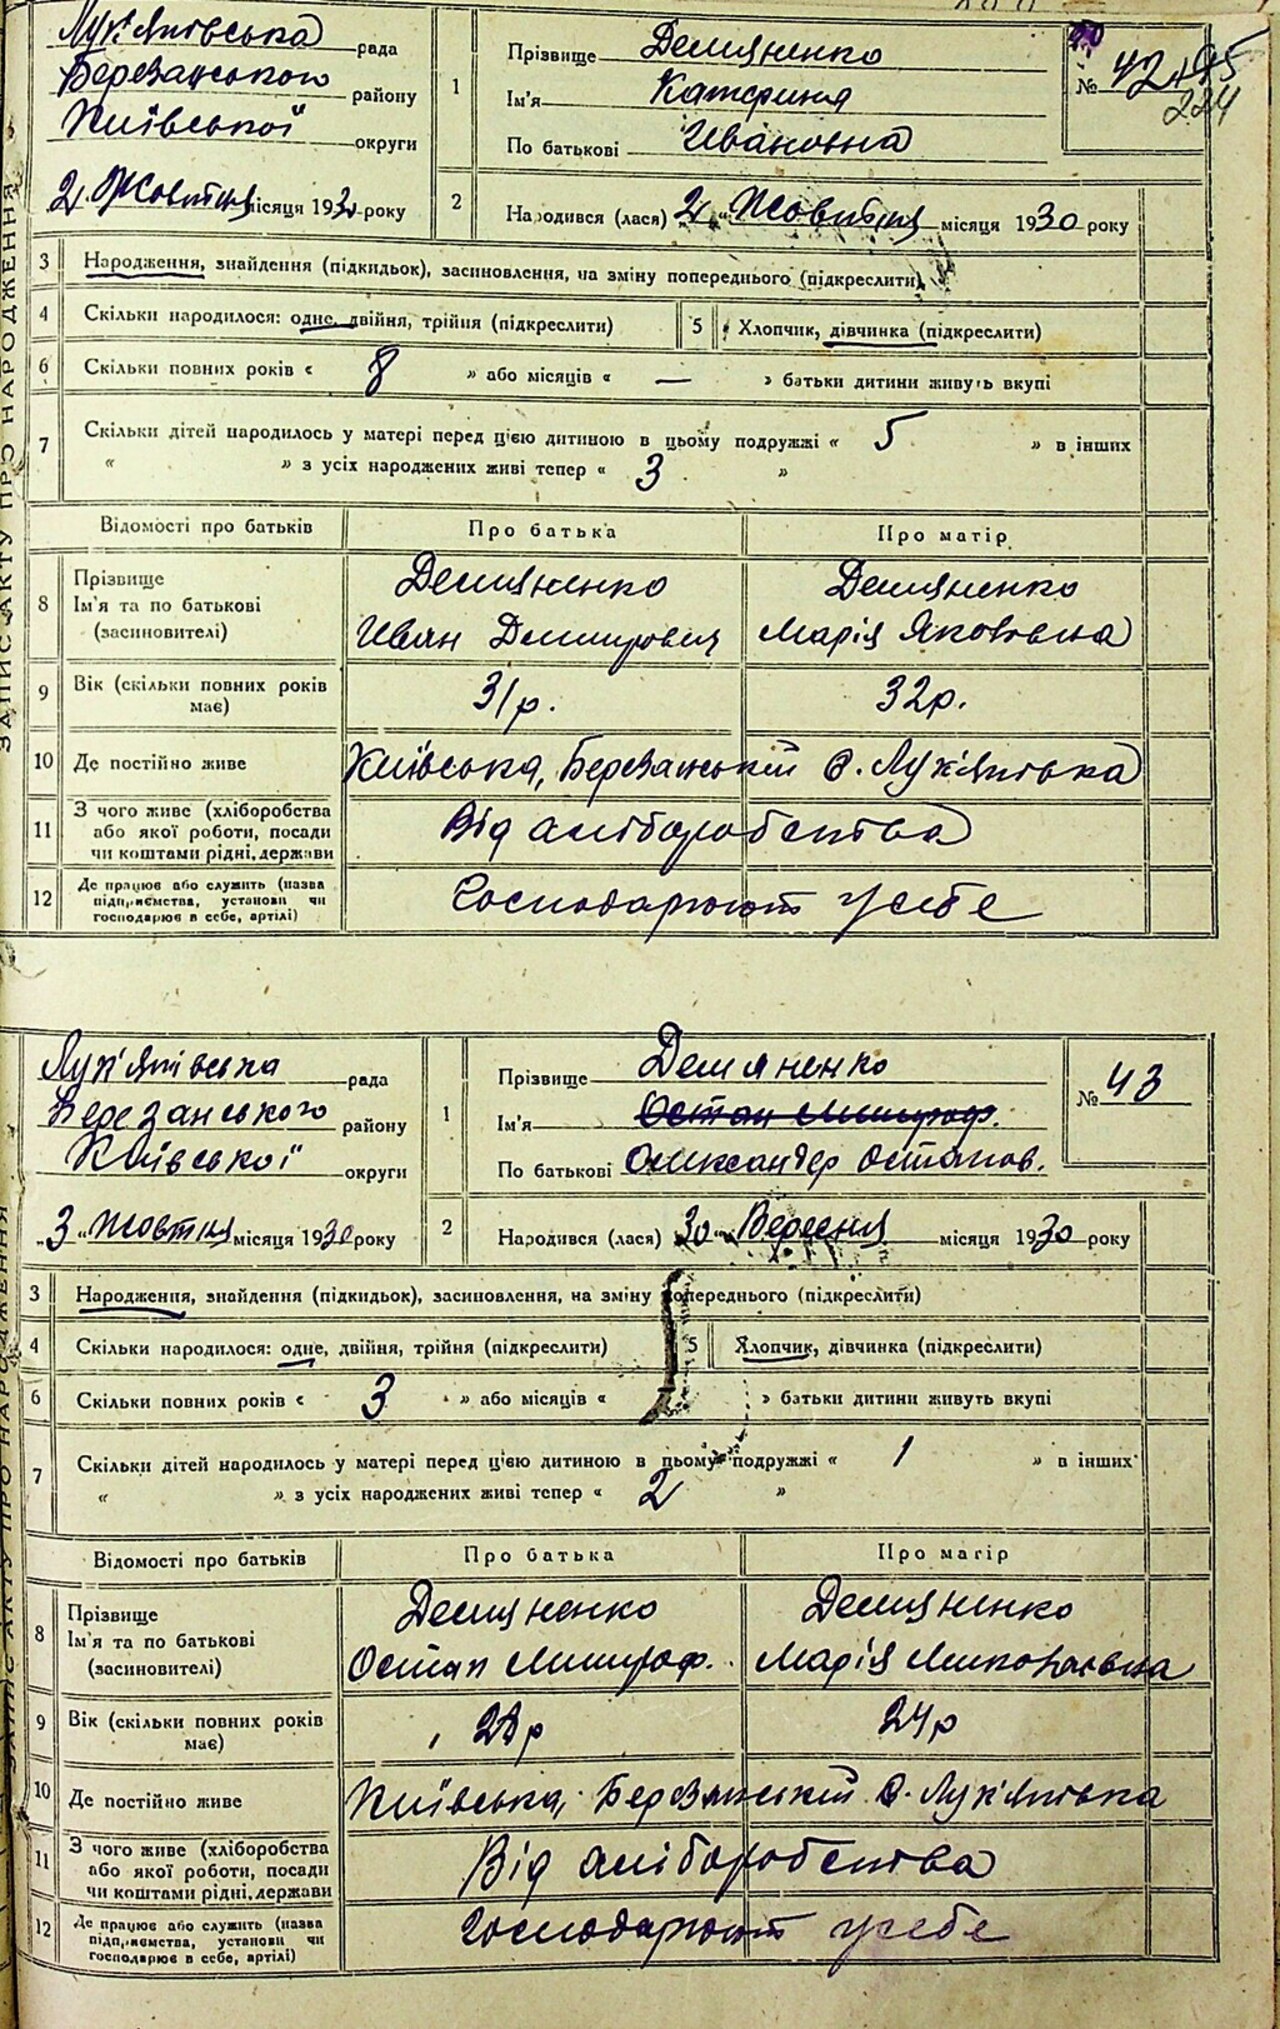 Лук'янівська рада
Березанського району
Київської округи
2 Жовтня місяця 1930 року
1
Прізвище Демяненко
Ім'я Катерина
По батькові Ивановна
№ 42
224
2
Народився (лася) 2 „ Жовтня місяця 1930 року
3 Народження, знайдення (підкидьок), засиновлення, на зміну попереднього (підкреслити)
4 Скільки народилося: одне, двійня, трійня (підкреслити) 5 Хлопчик, дівчинка (підкреслити)
6 Скільки повних років « 8 » або місяців « — » батьки дитини живуть вкупі
7 Скільки дітей народилось у матері перед цією дитиною в цьому подружжі « 5 » в інших
« » з усіх народжених живі тепер « 3 »
Відомості про батьків Про батька Про матір
8 Прізвище Демяненко Демяненко
Ім'я та по батькові Иван Дмитрович Марія Якововна
(засиновителі)
9 Вік (скільки повних років має) 31р. 32р.
10 Де постійно живе Київська, Березанський с. Лук'янівка
11 З чого живе (хліборобства
або якої роботи, посади Від хліборобства
чи коштами рідні, держави
12 Де працює або служить (назва
підприємства, установи чи Господарюют усебе
господарює в себе, артілі)
ЗАПИС АКТУ ПРО НАРОДЖЕННЯ
Лук'янівська рада
Березанського району
Київської округи
„3 “ Жовтня місяця 1930 року
1
Прізвище Демяненко
Ім'я Остап Митроф.
По батькові Олександер Остапов.
№ 43
2
Народився (лася) 30 „ Вересня місяця 1930 року
3 Народження, знайдення (підкидьок), засиновлення, на зміну попереднього (підкреслити)
4 Скільки народилося: одне, двійня, трійня (підкреслити) 5 Хлопчик, дівчинка (підкреслити)
6 Скільки повних років « 3 » або місяців « » батьки дитини живуть вкупі
7 Скільки дітей народилось у матері перед цією дитиною в цьому подружжі « 1 » в інших
« » з усіх народжених живі тепер « 2 »
Відомості про батьків Про батька Про матір
8 Прізвище Демяненко Демяненко
Ім'я та по батькові Остап Митроф. Марія Миколаевна
(засиновителі)
9 Вік (скільки повних років має) р 24р
10 Де постійно живе Київська, Березанський с. Лук'янівка
11 З чого живе (хліборобства
або якої роботи, посади Від хліборобства
чи коштами рідні, держави
12 Де працює або служить (назва
підприємства, установи чи Господарюют усебе
господарює в себе, артілі)